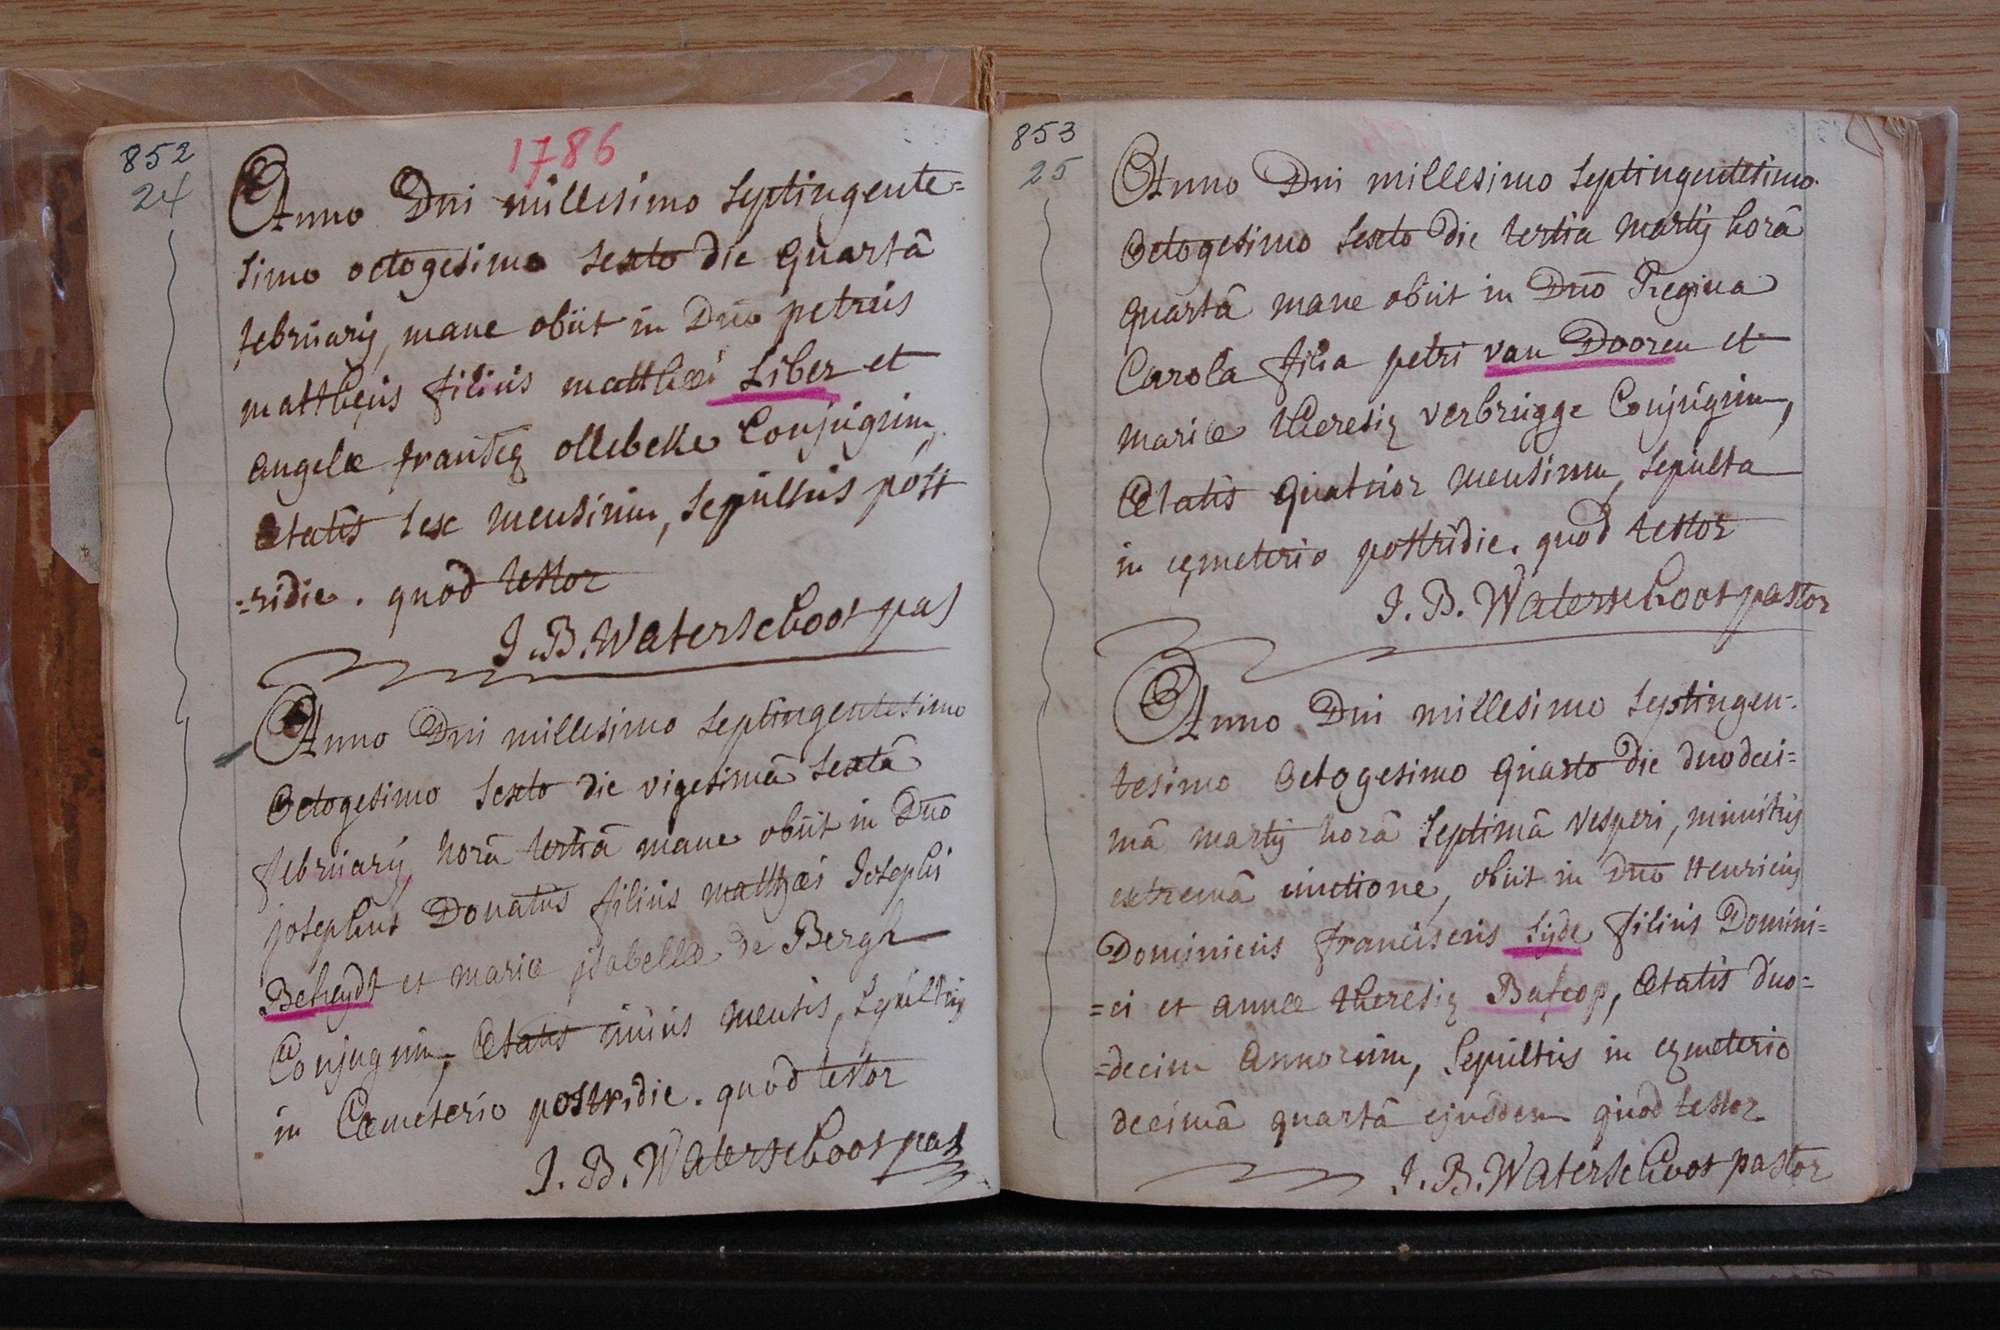 852
24
1786
Anno Dni millesimo septingente=
simo octogesimo sexto die quartâ
februarij, mane obiit in Dno petrus
mattheus filius matthæi Liber et
angelæ francæ ollebeke Conjugum,
Ætatis sex mensium, sepultus post
=ridie. quod testor
J. B. Waterschoot pas
Anno Dni millesimo septingentesimo
Octogesimo sexto die vigesimâ sextâ
februarij, horâ tertiâ mane obiit in Dno
josephus Donatus filius matthæi Josephi
Beheydt et mariæ jsabellæ de Bergh
Conjugum, Ætatis unius mensis, sepultus
in Cæmeterio postridie. quod testor
J. B. Waterschoot pas
853
25
Anno Dni millesimo septingentesimo
Octogesimo sexto die tertia martij horâ
quartâ mane obiit in Dno Regina
Carola filia petri van Dooren et
mariæ theresiæ verbrugge Conjugum,
Ætatis quatuor mensium, sepulta
in cæmeterio postridie. quod testor
J. B. Waterschoot pastor
Anno Dni millesimo septingen=
tesimo Octogesimo quarto die duodeci=
mâ martij horâ septimâ vesperi, munitus
extremâ unctione, obiit in Dno Henricus
Dominicus franciscus Syde filius Domini=
=ci et annæ theresiæ Ætatis duo=
=decim annorum, sepultus in cæmeterio
decimâ quartâ ejusdem quod testor
J. B. Waterschoot pastor